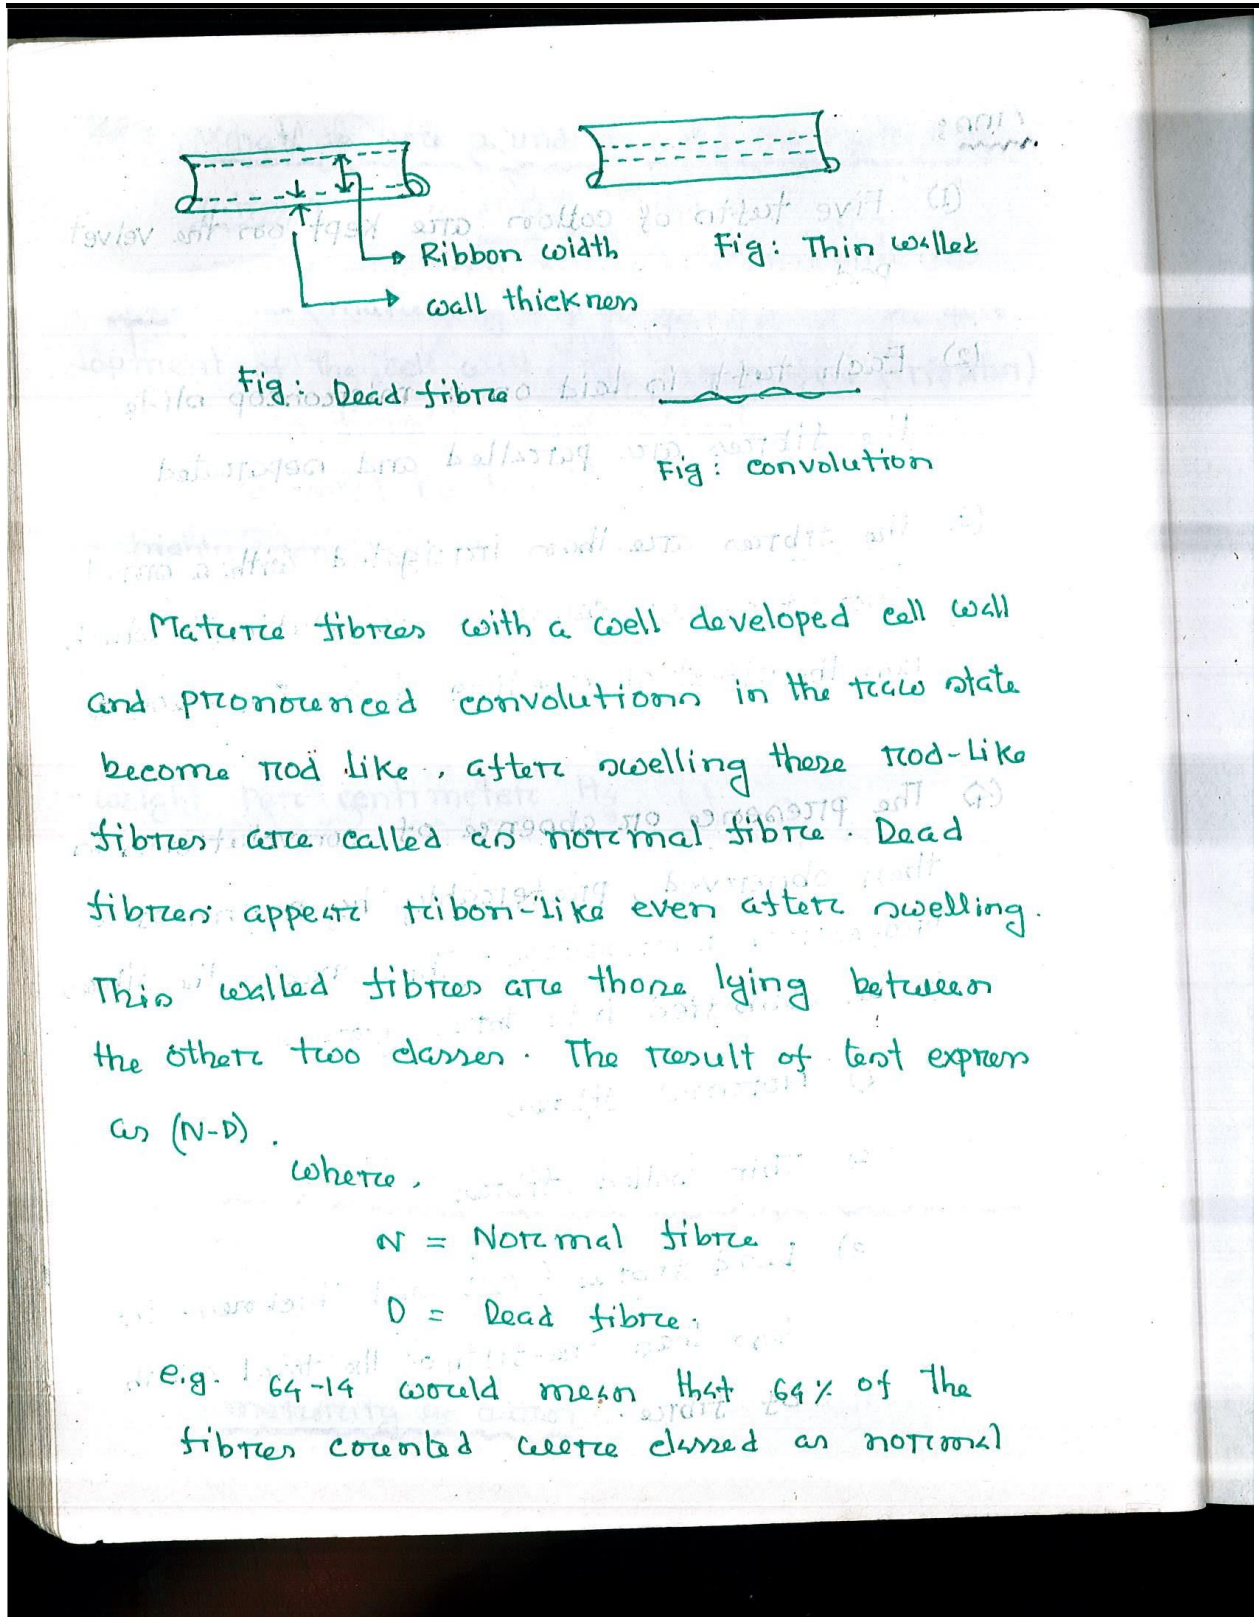 Ribbon width
wall thickness
Fig: Thin wallet
Fig: Dead fibre
Fig: convolution
Mature fibres with a well developed cell wall
and pronounced convolutions in the raw state
become rod like, after swelling these rod-like
fibres are called as normal fibre. Dead
fibres appear ribon-like even after swelling.
This walled fibres are those lying between
the other two classes. The result of test express
as (N-D).
where,
N = Normal fibre.
D = Dead fibre.
e.g. 64-14 would mean that 64% of the
fibres counted were classed as normal